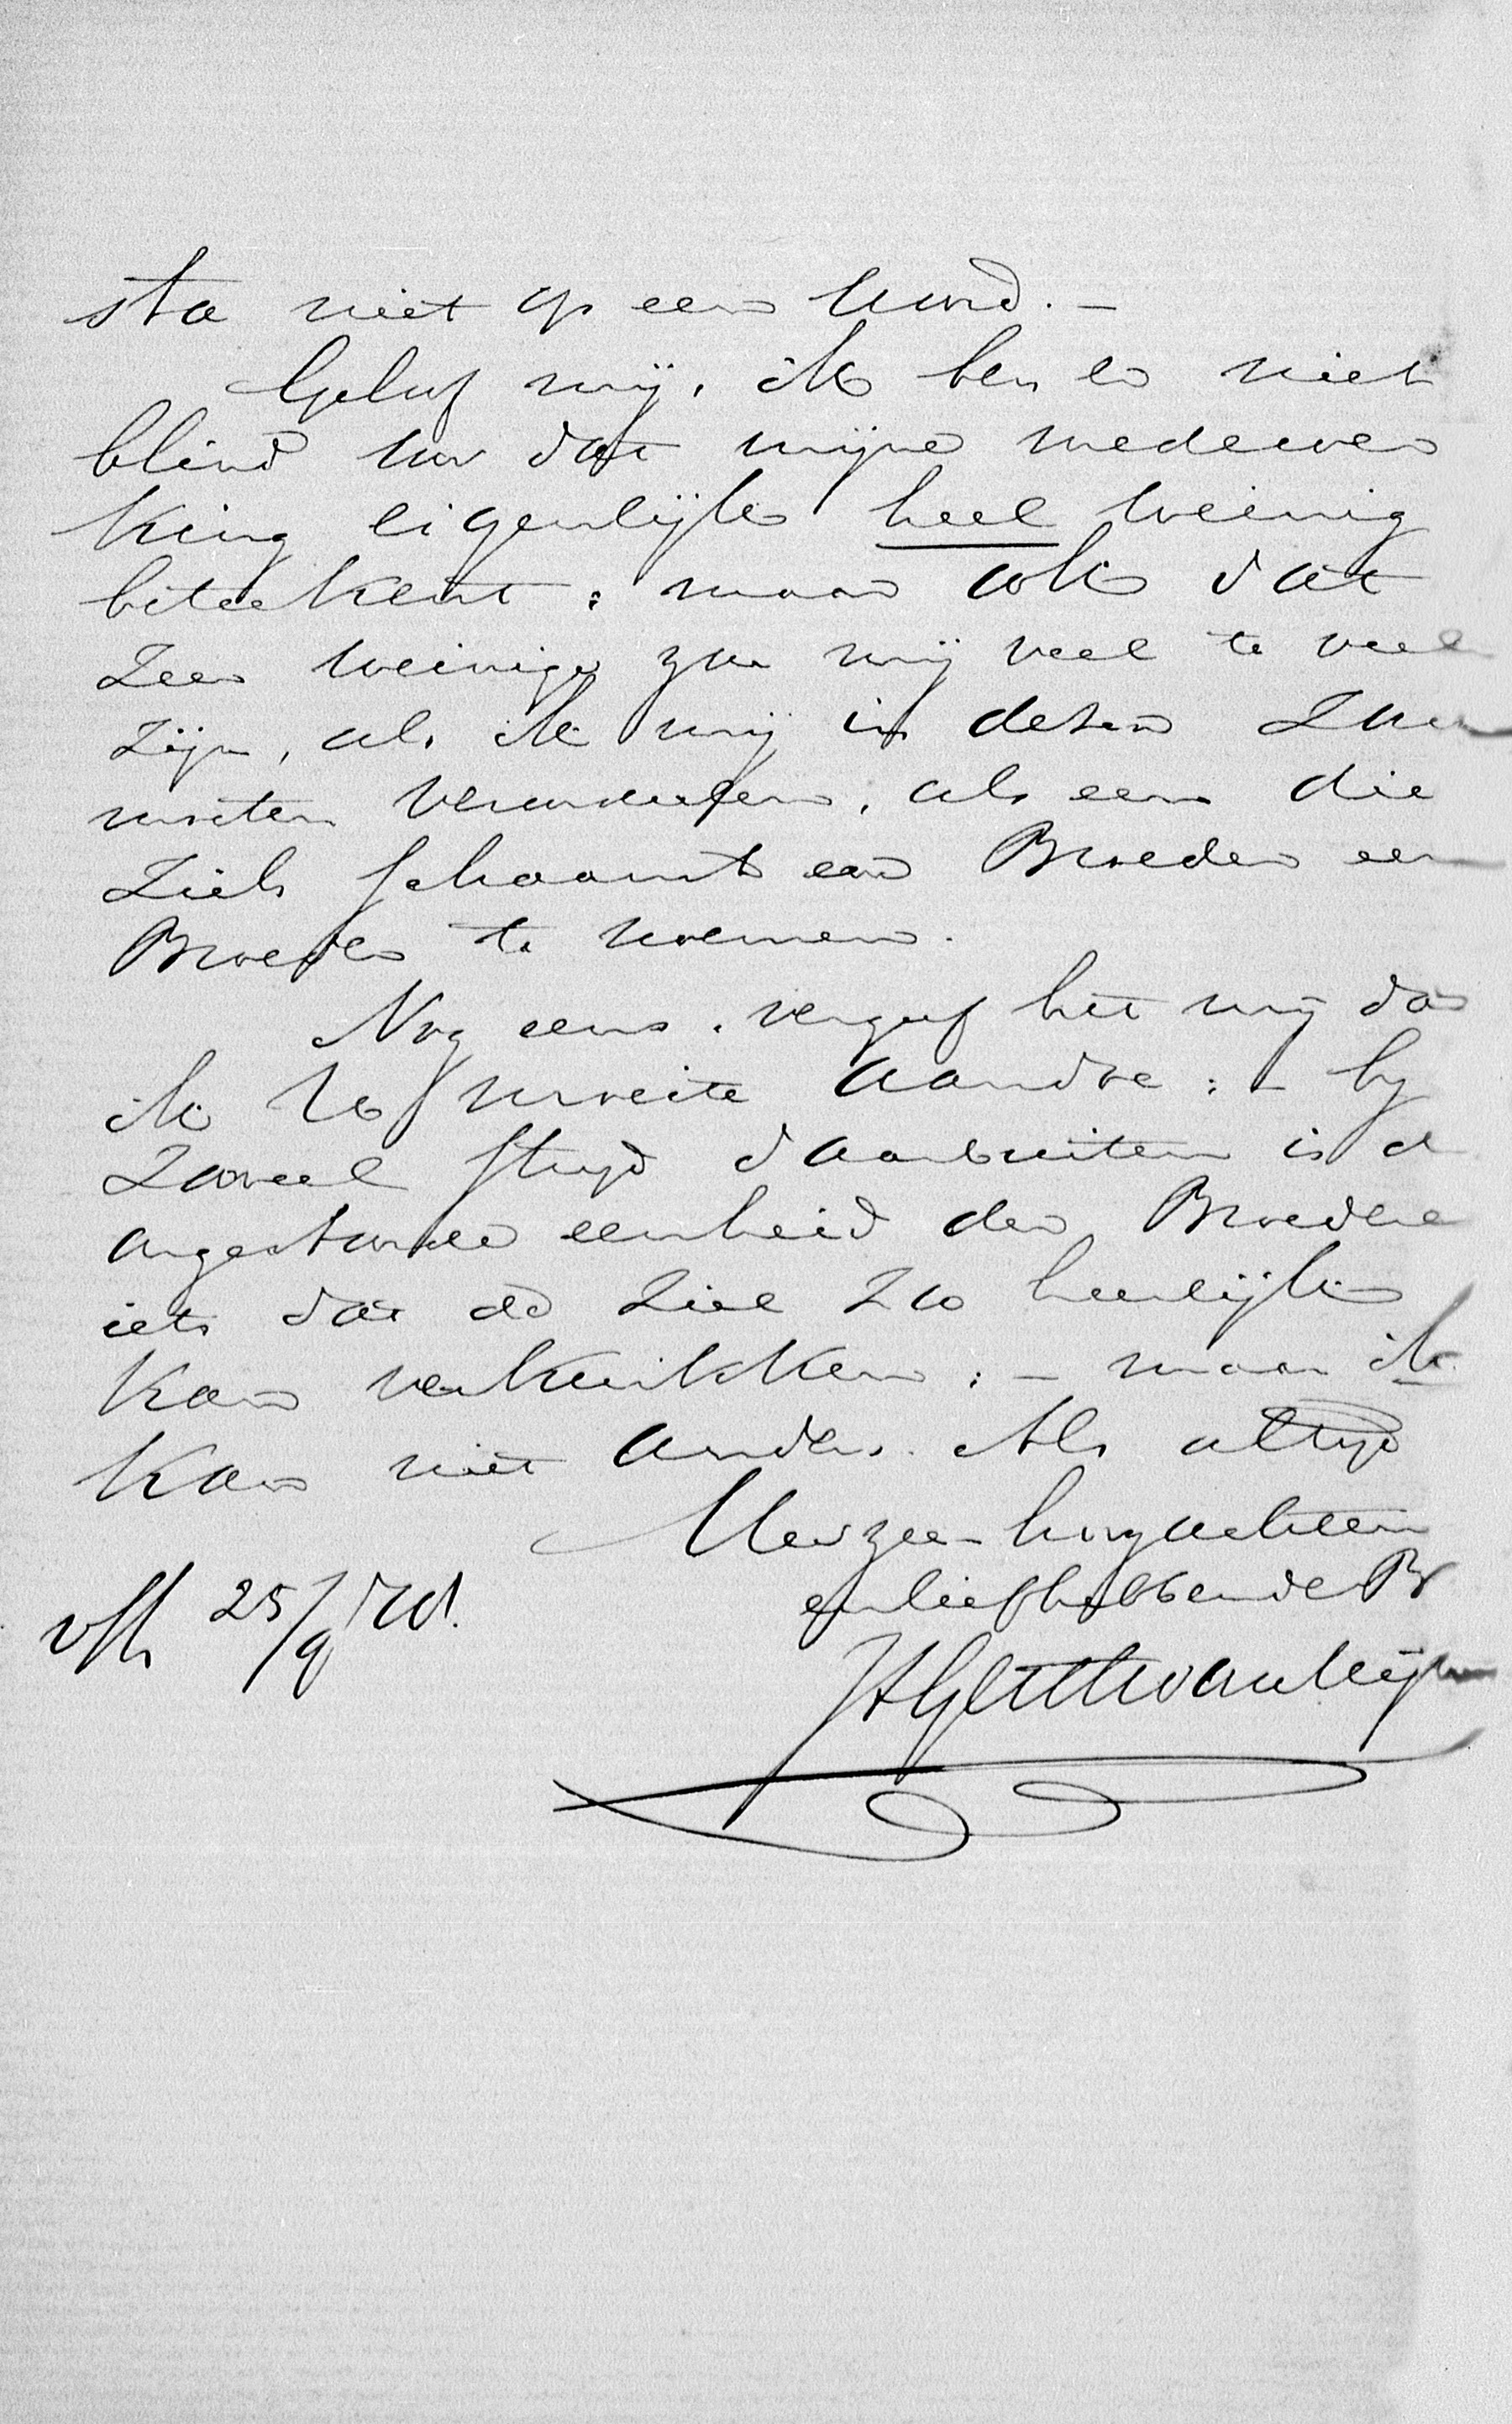 sta niet op een woord. –
Geloof mij, ik ben er niet
blind voor dat mijne medewer
king eigenlijk heel weinig
beteekent; maar ook dat
zeer weinige zou mij veel te veel
zijn, als ik mij in dezen zou
moeten veranderen, als een die
zich schaamt een Broeder een
Broeder te noemen.
Nog eens, vergeef het mij dat
ik U moeite aandoe: – bij
zooveel strijd daarbuiten is d
ongestoorde eenheid der Broedere
iets dat de ziel zoo heerlijk
kan verkwikken: – maar ik
kan niet anders. Als altijd
Uw zeer hoogachtenn
en liefhebbende Br
25/9